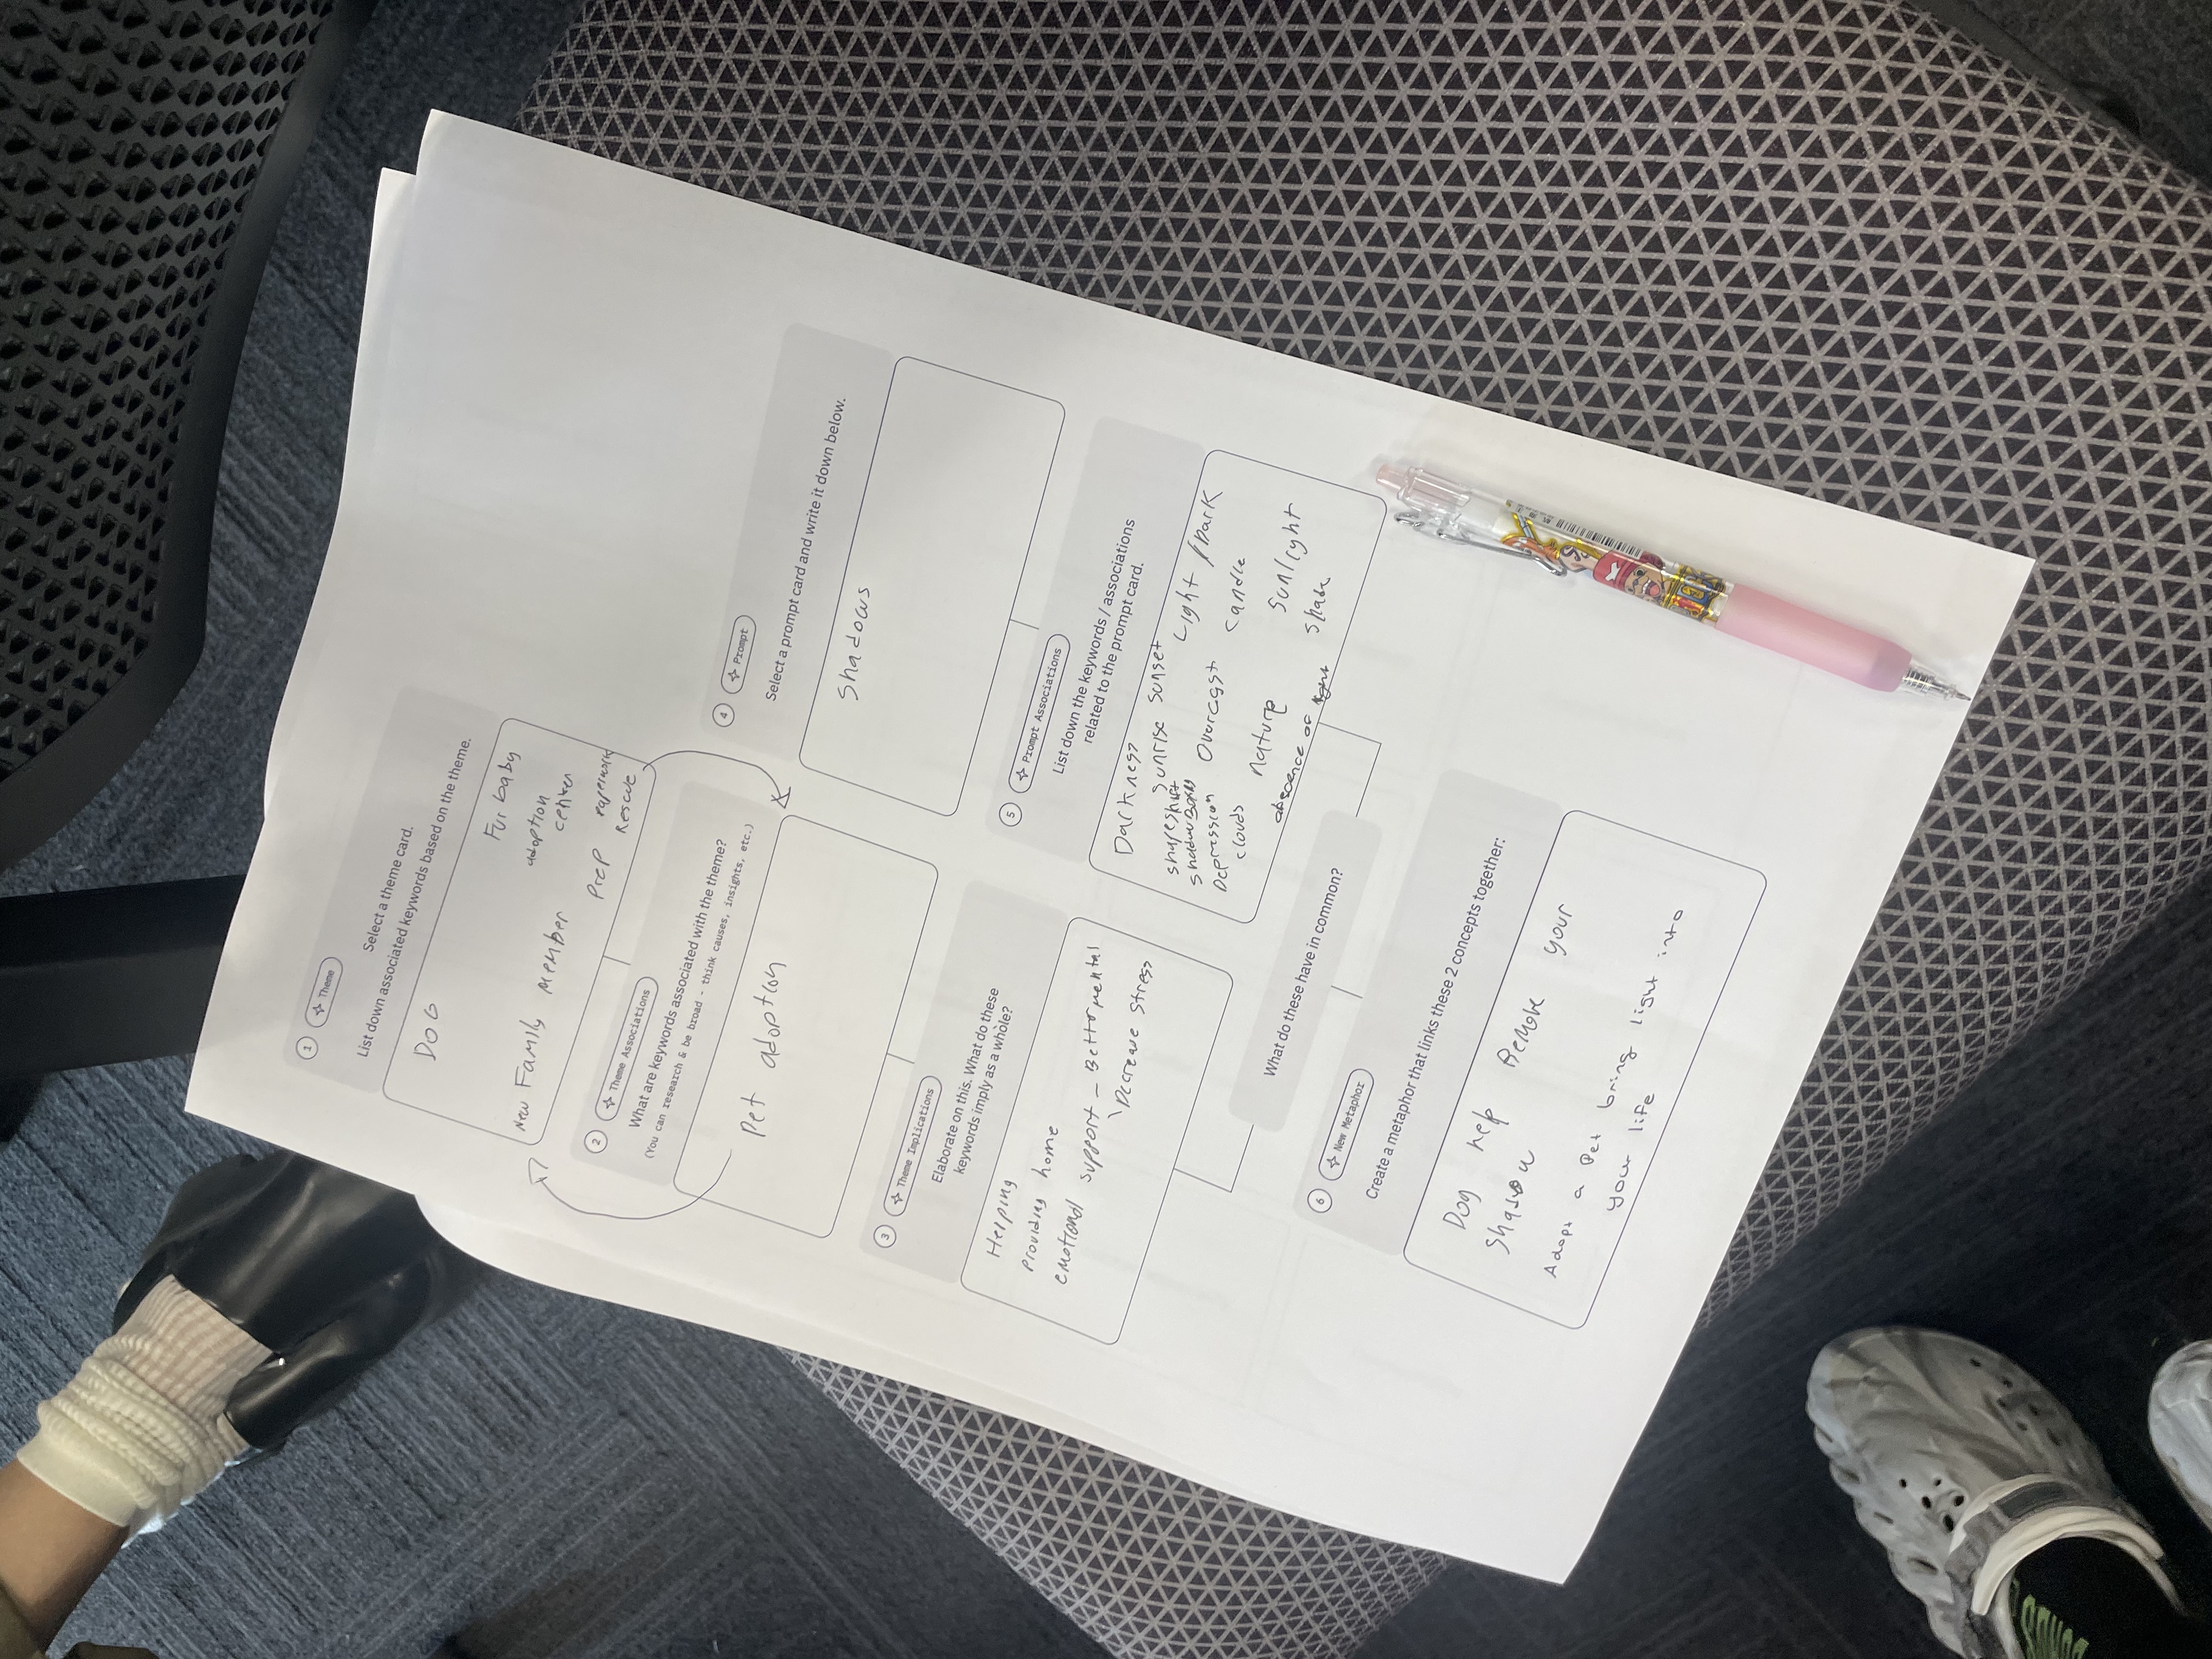 1 Theme
Select a theme card.
List down associated keywords based on the theme.
DOG
Fur baby
adoption
center
New Family member
Prep paperwork
Rescue
2 Theme Associations
What are keywords associated with the theme?
(You can research & be broad - think causes, insights, etc.)
Pet adoption
3 Theme Implications
Elaborate on this. What do these
keywords imply as a whole?
Helping
Providing home
emotional support - Better mental
\ Decrease stress
4 Prompt
Select a prompt card and write it down below.
Shadows
5 Prompt Associations
List down the keywords / associations
related to the prompt card.
Darkness
sunrise sunset
Light / Dark
shapeshift
Overcast
candle
Depression
clouds
nature
sunlight
abscence of light
shade
What do these have in common?
6 New Metaphor
Create a metaphor that links these 2 concepts together:
Dog help Remove your
Shadow
Adopt a Pet bring light into
your life